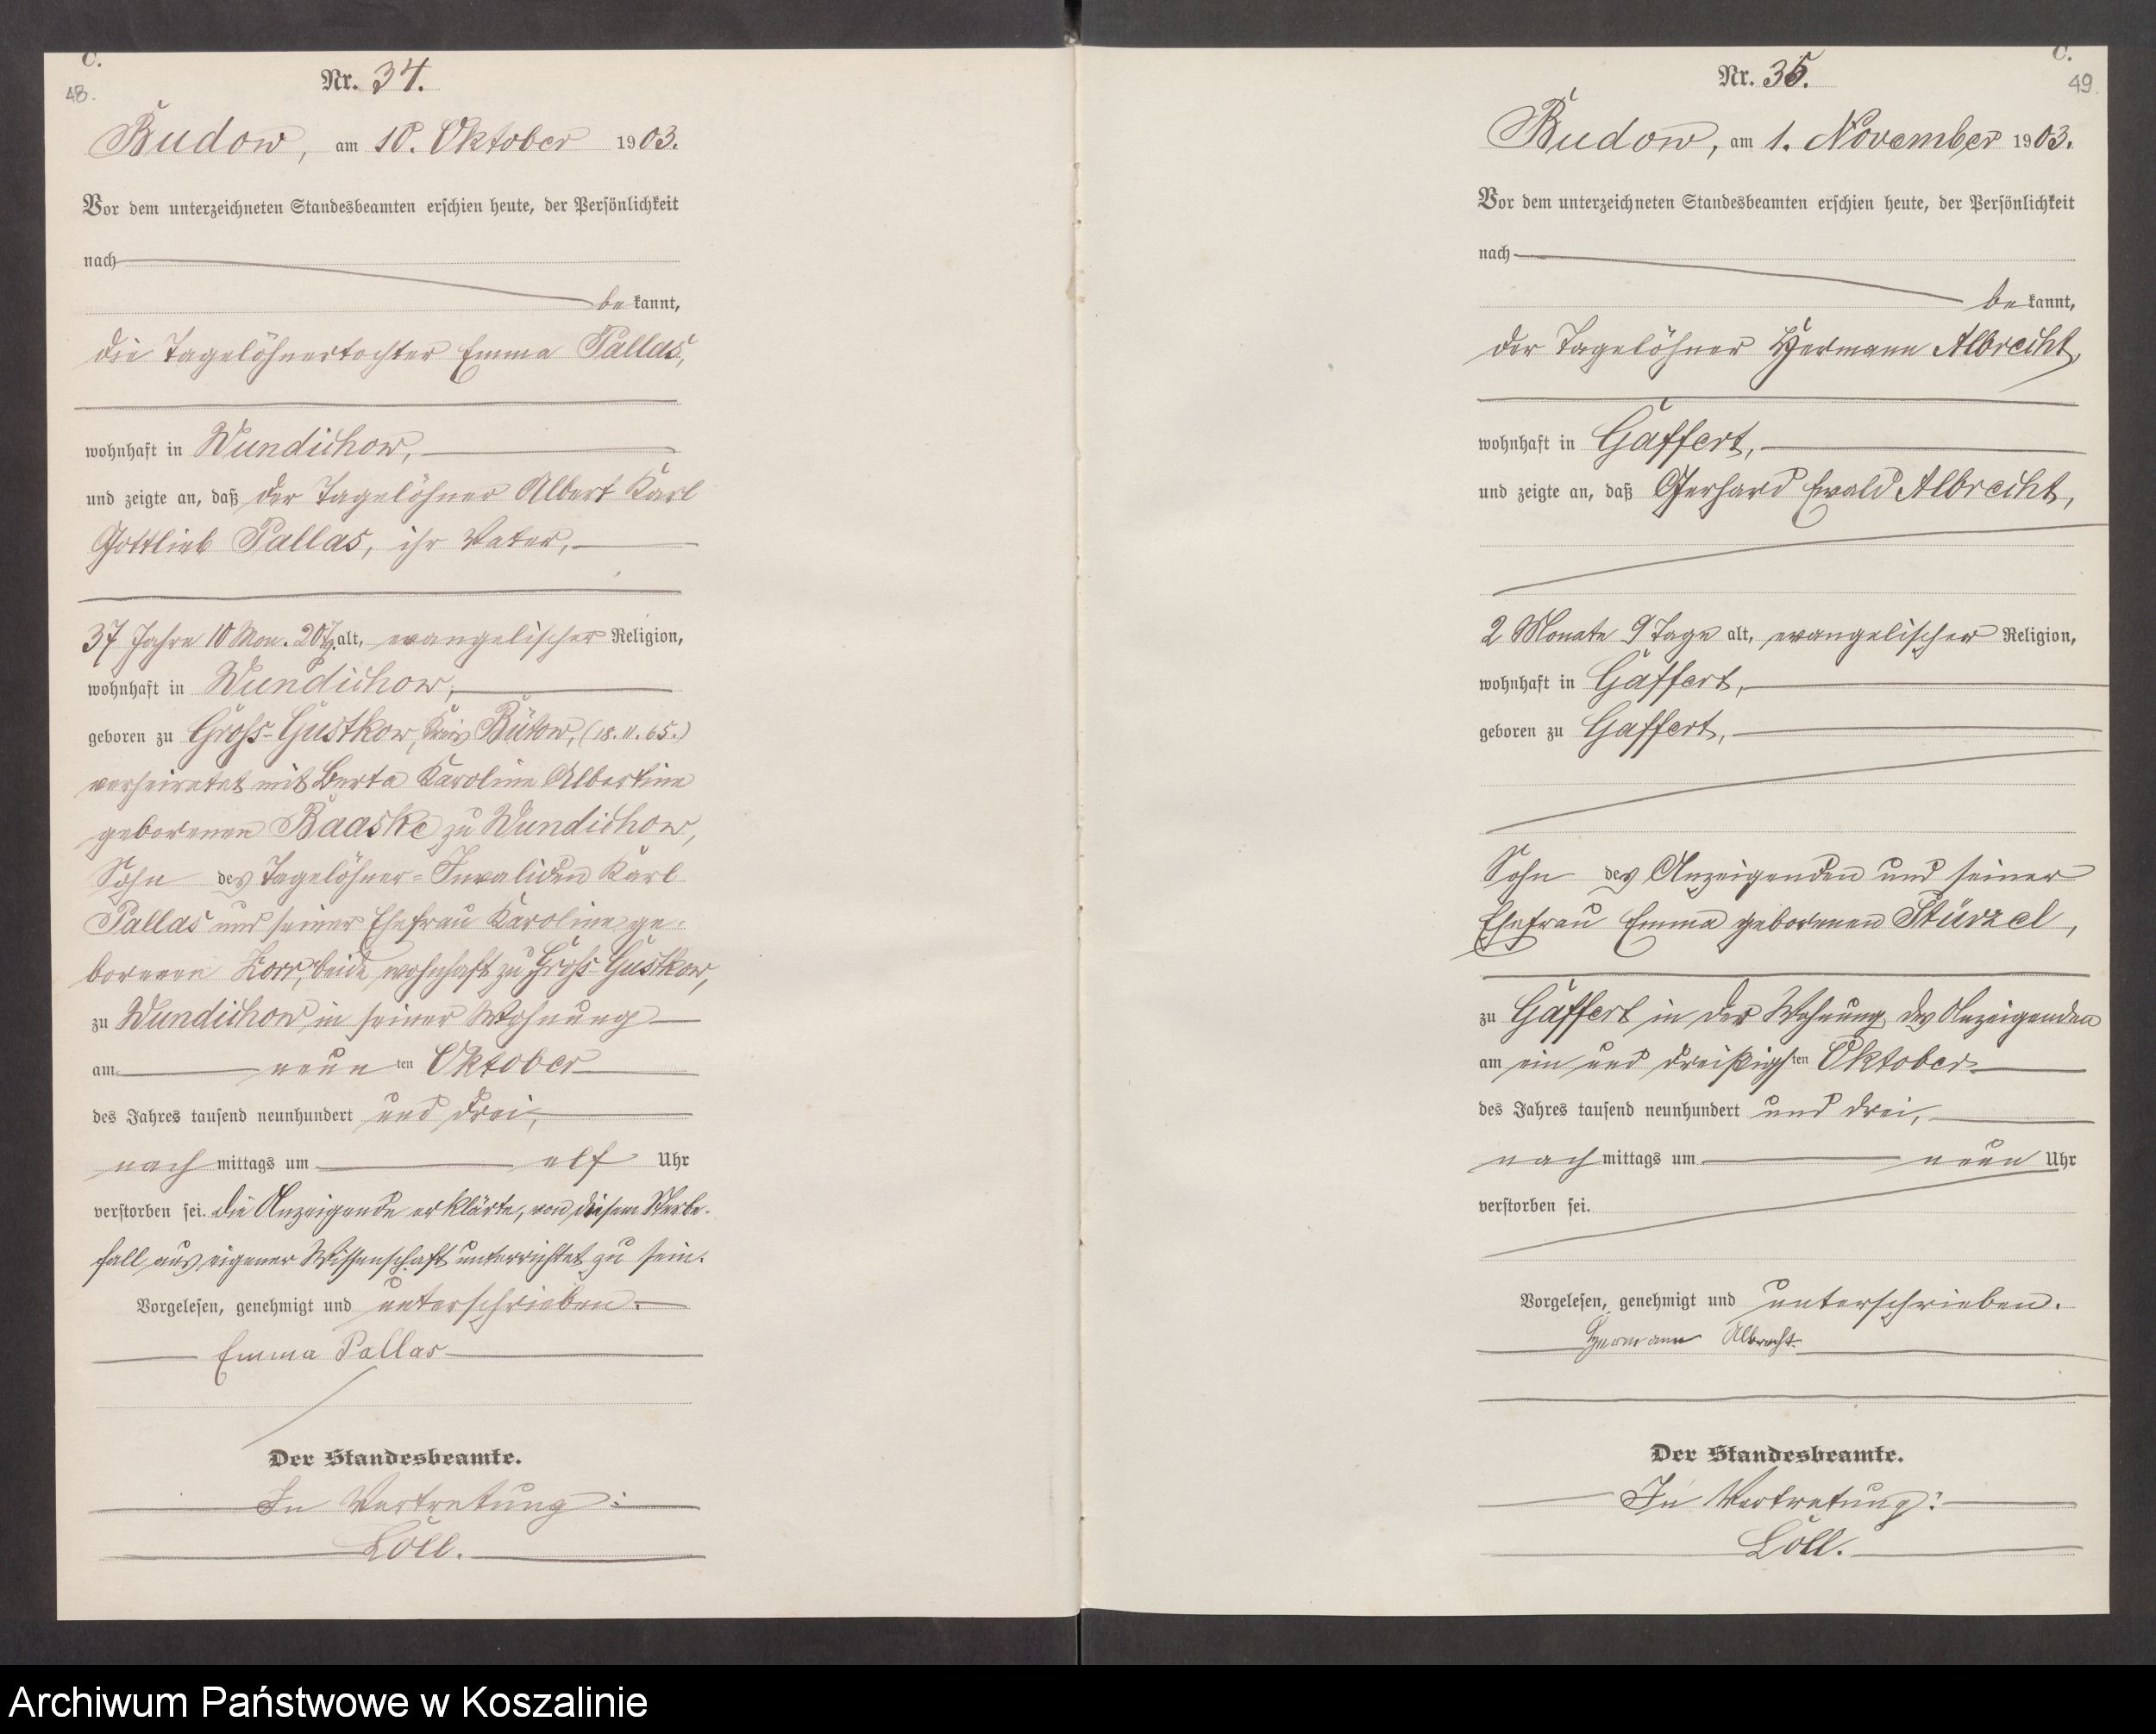 C.
48.
Nr. 34.
Budow, am 10. Oktober 1903.
Vor dem unterzeichneten Standesbeamten erschien heute, der Persönlichkeit
nach
bekannt,
die Tagelöhnertochter Emma Pallas,
wohnhaft in Wundichow,
und zeigte an, daß der Tagelöhner Albert Karl
Gottlieb Pallas, ihr Vater,
37 Jahre 10 Mon. 20 Tg. alt, evangelischer Religion,
wohnhaft in Wundichow,
geboren zu Groß-Gustkow, Kreis Bütow, (18.11.65.)
verheiratet mit Berta Karoline Albertine
geborenen Baaske zu Wundichow,
Sohn des Tagelöhner-Invaliden Karl
Pallas und seiner Ehefrau Karoline ge-
borenen Zorr, beide wohnhaft zu Groß-Gustkow,
zu Wundichow in seiner Wohnung
am neunten Oktober
des Jahres tausend neunhundert und drei,
nachmittags um elf Uhr
verstorben sei. Die Anzeigende erklärte, von diesem Sterbe-
fall aus eigener Wissenschaft unterrichtet zu sein.
Vorgelesen, genehmigt und unterschrieben.
Emma Pallas
Der Standesbeamte.
In Vertretung:
Löll.
C.
49.
Nr. 35.
Budow, am 1. November 1903.
Vor dem unterzeichneten Standesbeamten erschien heute, der Persönlichkeit
nach
bekannt,
der Tagelöhner Hermann Albrecht,
wohnhaft in Gaffert,
und zeigte an, daß Gerhard Ewald Albrecht,
2 Monate 9 Tage alt, evangelischer Religion,
wohnhaft in Gaffert,
geboren zu Gaffert,
Sohn des Anzeigenden und seiner
Ehefrau Emma geborenen Stürzel,
zu Gaffert in der Wohnung des Anzeigenden
am ein und dreißigsten Oktober
des Jahres tausend neunhundert und drei,
nachmittags um neun Uhr
verstorben sei.
Vorgelesen, genehmigt und unterschrieben.
Hermann Albrecht.
Der Standesbeamte.
In Vertretung:
Löll.
Archiwum Państwowe w Koszalinie